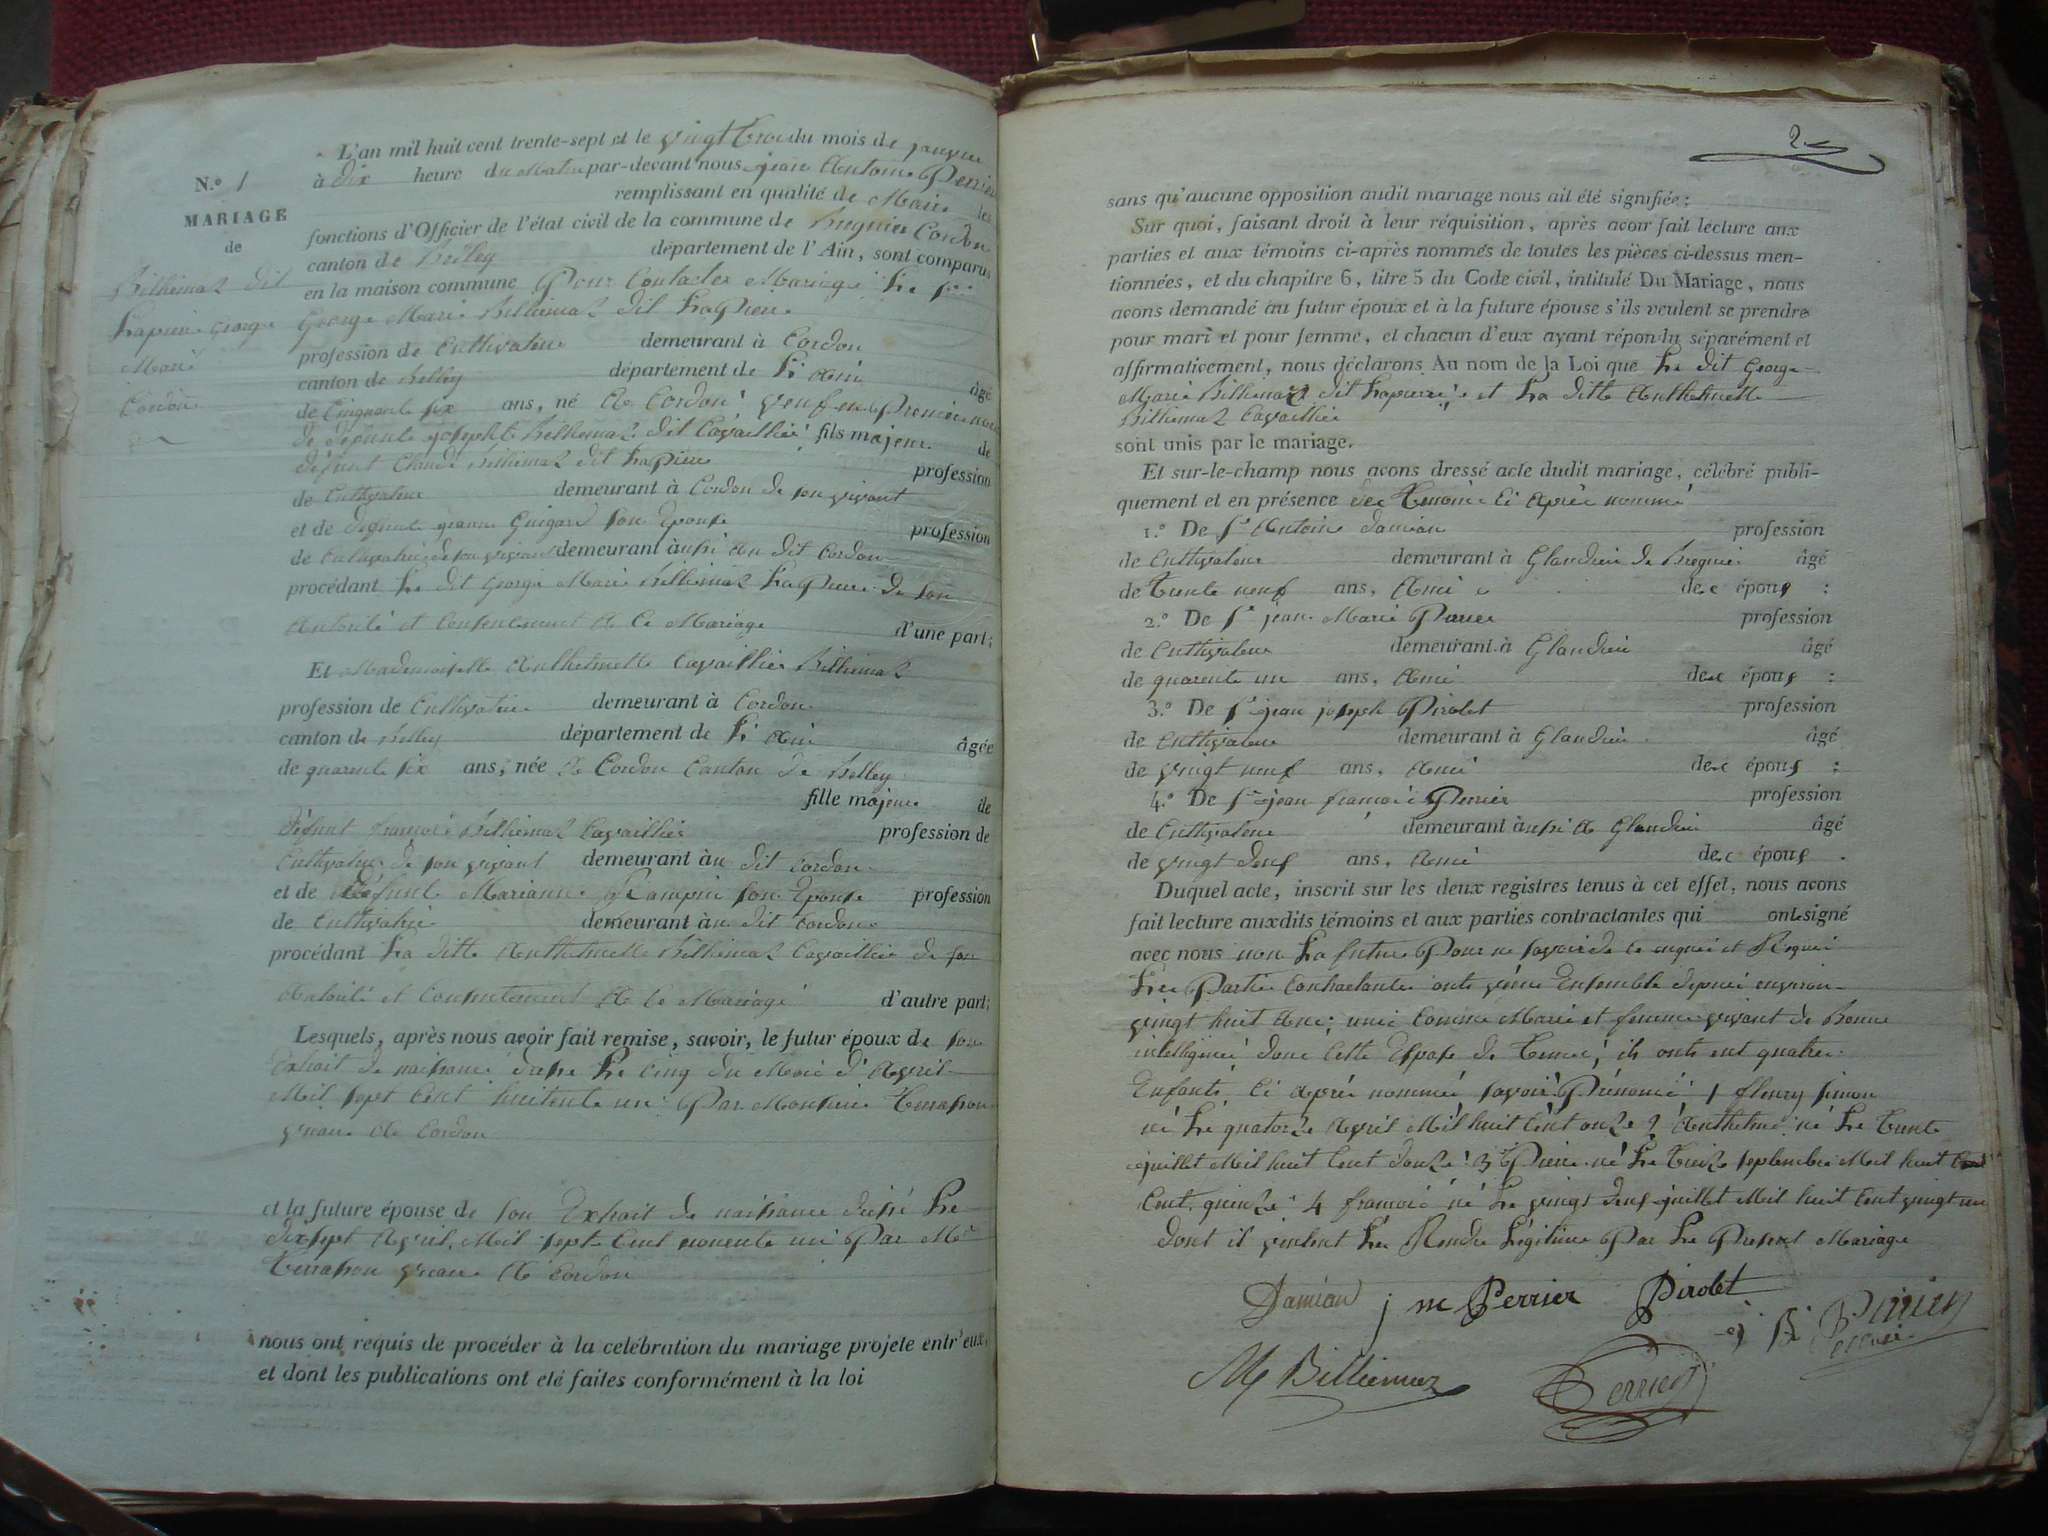 L'an mil huit cent trente-sept et le vingt trois du mois de janvier
N.º 1
à dix heure du Matin par-devant nous jean Antoine Perrier
remplissant en qualité de Maire les
MARIAGE
de
fonctions d'Officier de l'état civil de la commune de Bregnier Cordon
canton de Belley département de l'Ain, sont comparus
Billiemaz dit
Lapierre George
Marie
Cordon
en la maison commune Pour Contacter Mariage Le sr
George Marie Billiemaz dit LaPierre
profession de Cultivateur demeurant à Cordon
canton de Belley département de L'Ain âgé
de Cinquante six ans, né A Cordon veuf en Premier
de défunte josephte Billiemaz dit Cavaillier fils majeur de
défunt Claude Billiemaz dit LaPierre profession
de Cultivateur demeurant à Cordon de son vivant
et de défunte jeanne Guigard son Epouse profession
de Cultivatrice de son vivant demeurant aussi Au dit Cordon
procédant Le dit George Marie Billiemaz LaPierre de son
Autorité et Consentement A Ce Mariage d'une part;
Et Mademoiselle Anthelmette Cavaillier Billiemaz
profession de Cultivatrice demeurant à Cordon
canton de Belley département de L'Ain âgée
de quarente six ans, née A Cordon Canton de Belley
fille majeure de
défunt françois Billiemaz Cavaillier profession de
Cultivateur de son vivant demeurant au dit Cordon
et de Défunte Marianne son Epouse profession
de Cultivatrice demeurant au dit Cordon
procédant La ditte Anthelmette Billiemaz Cavaillier de son
Autorité et Consentement A Ce Mariage d'autre part;
Lesquels, après nous avoir fait remise, savoir, le futur époux de son
Extrait de naissance Le Cinq du Mois d'Avril
Mil sept Cent huitente un Par Monsieur Terrasson
vicaire A Cordon
et la future épouse de son Extrait de naissance Le
dixsept Avril Mil sept Cent nonente un Par Mr
Terrasson vicaire A Cordon
nous ont requis de procéder à la celébration du mariage projete entr'eux,
et dont les publications ont eté faites conformément à la loi
2
sans qu'aucune opposition audit mariage nous ait été signifiée;
Sur quoi, faisant droit à leur réquisition, après avoir fait lecture aux
parties et aux témoins ci-après nommés de toutes les pièces ci-dessus men-
tionnées, et du chapitre 6, titre 5 du Code civil, intitulé Du Mariage, nous
avons demandé au futur époux et à la future épouse s'ils veulent se prendre
pour mari et pour femme, et chacun d'eux ayant répondu séparément et
affirmativement, nous déclarons Au nom de la Loi que Le dit George
Marie Billiemaz dit Lapierre et La ditte Anthelmette
Billiemaz Cavaillier
sont unis par le mariage.
Et sur-le-champ nous avons dressé acte dudit mariage, célébré publi-
quement et en présence des Temoins Ci Après nommé
1.º De sr Antoine Damian profession
de Cultivateur demeurant à Glandieu de Bregnier âgé
de Trente neuf ans, Ami des époux :
2.º De sr jean Marie Perrier profession
de Cultivateur demeurant à Glandieu âgé
de quarente un ans, Ami des époux :
3.º De sr jean joseph Pirolet profession
de Cultivateur demeurant à Glandieu âgé
de vingt neuf ans, Ami des époux :
4.º De sr jean françois Perrier profession
de Cultivateur demeurant aussi A Glandieu âgé
de vingt deuf ans, Ami des époux .
Duquel acte, inscrit sur les deux registres tenus à cet effet, nous avons
fait lecture auxdits témoins et aux parties contractantes qui ont signé
avec nous non La future Pour ne savoir de ce enquis et Requis
Les Partie Contractantes onts vécu Ensemble depuis environ
vingt huit Ans; unis Comme Marie et femme vivant de Bonne
intelligence dans Cette Espase de Temes, ils onts ent quatre
Enfants Ci Après nommés savoir Prénomé 1 fleury simon
né Le quatorze Avril Mil huit Cent onze 2 Anthelme né Le Trente
juillet Mil huit Cent douze 3 Pierre né Le Treize septembre Mil huit
Cent quinze 4 françois né Le vingt deuf juillet Mil huit Cent vingt un
dont il veulent Les Rendre Légitime Par Le Present Mariage
Damian j m Perrier Pirolet
M Billiemaz Perrier